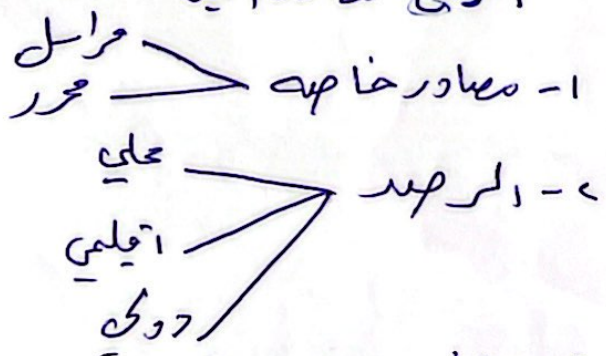 ١- مصادر خاصه
مراسل
محرر
٢- الرصد
محلي
اقليمي
دولي